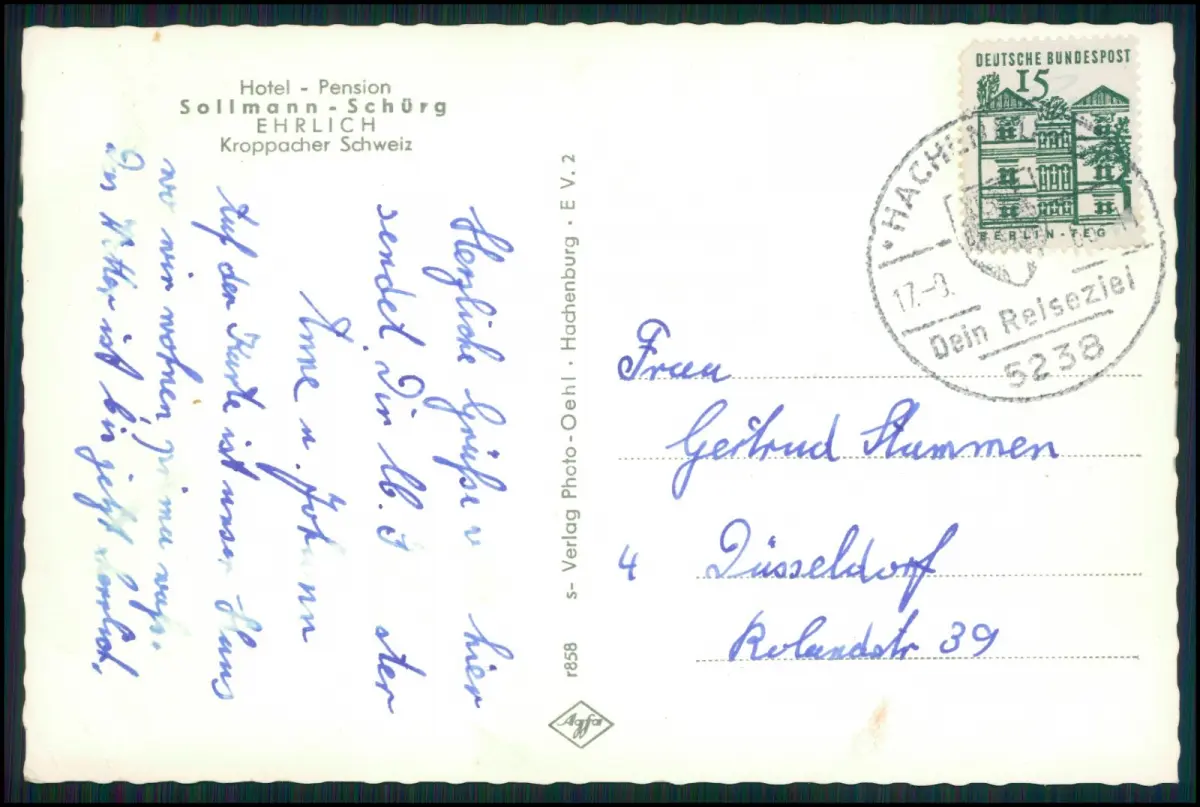 Hotel - Pension
Sollmann - Schürg
EHRLICH
Kroppacher Schweiz
Herzliche Grüße v hier
sendet Dir lb.
Anne u. Johann
Auf der Karte ist unser Haus
wo wir wohnen, prima
Das Wetter ist bis jetzt herrlich.
s- Verlag Photo-Oehl · Hachenburg · E V. 2
r858
Agfa
DEUTSCHE BUNDESPOST
15
BERLIN - TEG
HACHEN
17.-9.
Dein Reiseziel
5238
Frau
Gertrud Stammen
4 Düsseldorf
Rolandstr 39